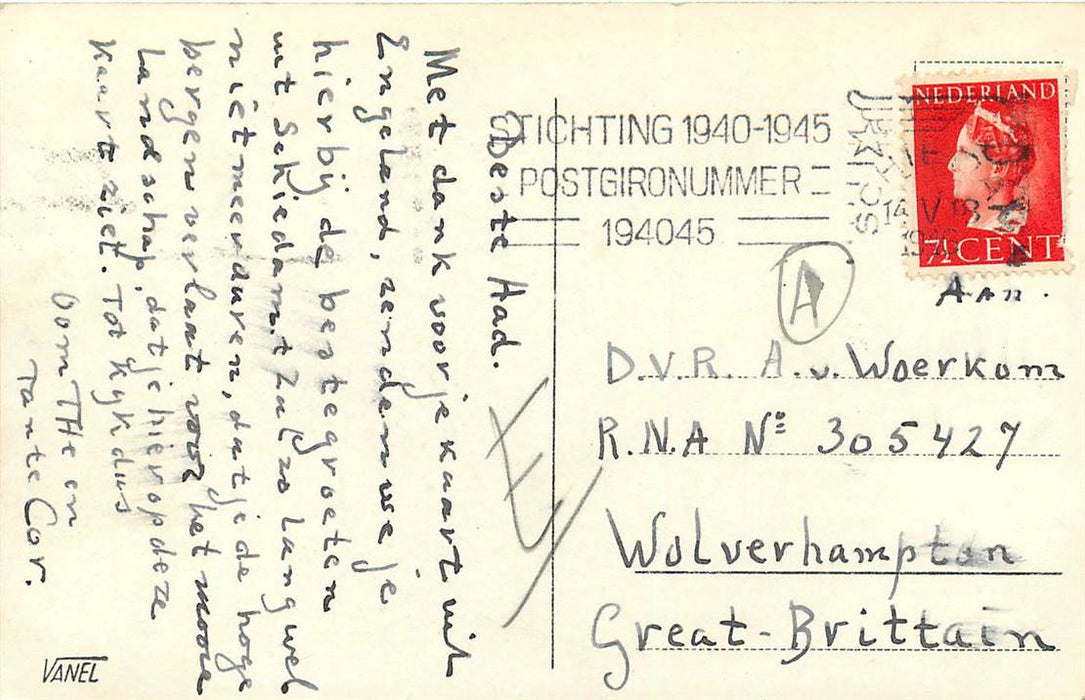 Beste Aad.
Met dank voor je kaart uit
Engeland, zenden we je
hierbij de beste groeten
uit Schiedam. t Zal zo lang wel
niet meer duren, dat je de hoge
bergen verlaat voor het mooie
Landschap, dat je hier op deze
kaart ziet. Tot Kyk dus
Oom THe en
Tante Cor.
VANEL
STICHTING 1940-1945
POSTGIRONUMMER
194045
NEDERLAND
14 V 18
1946
7½ CENT
A
Aan.
D.V.R. A. v. Woerkom
R.N.A Nº 305427
Wolverhampton
Great-Brittain